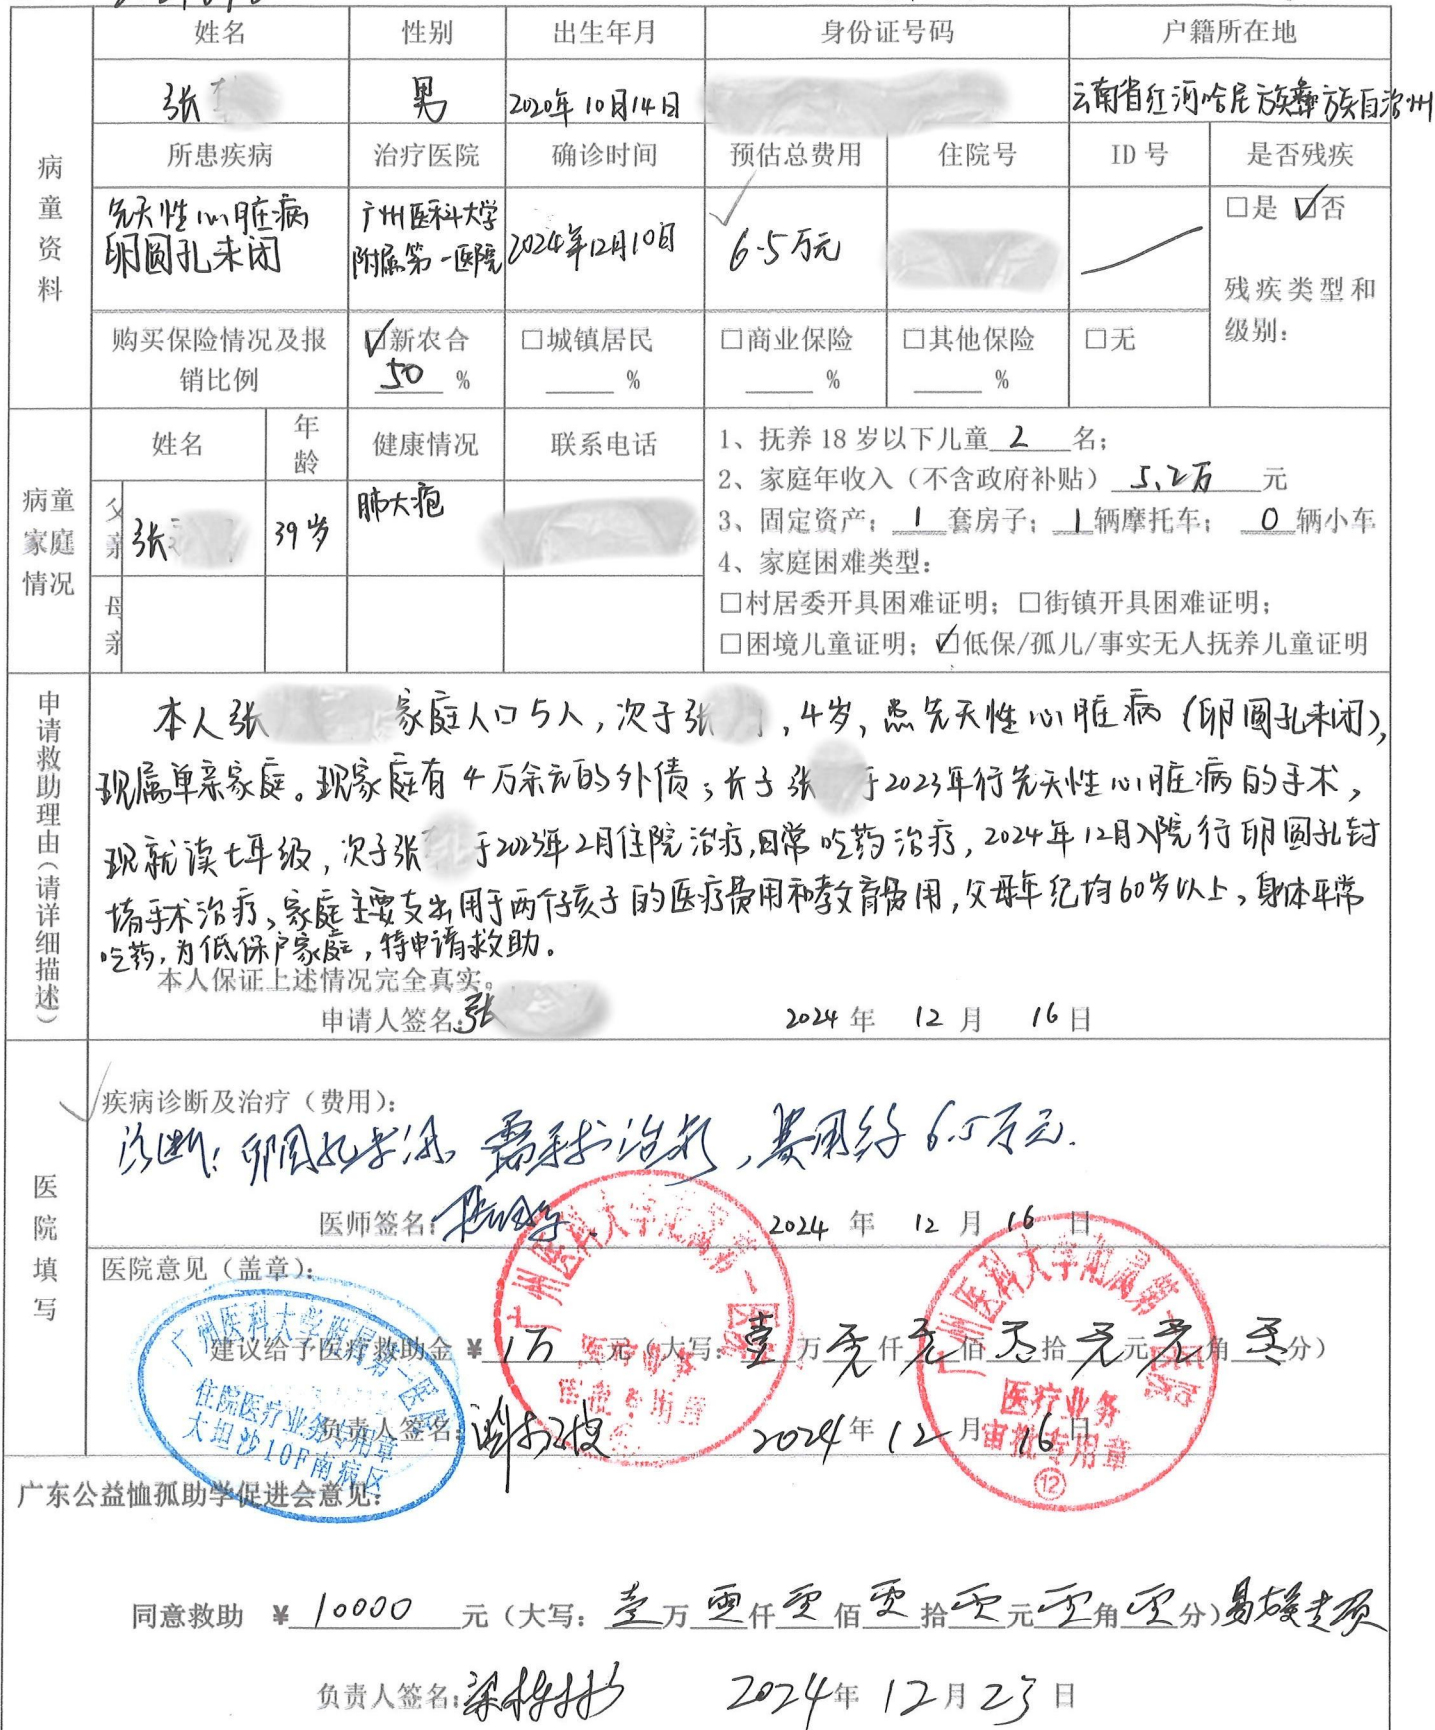 姓名 性别 出生年月 身份证号码 户籍所在地
张 男 2020年10月14日 云南省红河哈尼族彝族自治州
病童资料
所患疾病 治疗医院 确诊时间 预估总费用 住院号 ID号 是否残疾
先天性心脏病 广州医科大学 2024年12月10日 6.5万元 □是 ☑否
卵圆孔未闭 附属第一医院
残疾类型和
级别：
购买保险情况及报 ☑新农合 □城镇居民 □商业保险 □其他保险 □无
销比例 50 % % % %
病童家庭情况
姓名 年龄 健康情况 联系电话
父亲 张 39岁 肺大疱
母亲
1、抚养18岁以下儿童 2 名；
2、家庭年收入（不含政府补贴） 5.2万 元
3、固定资产； 1 套房子； 1 辆摩托车； 0 辆小车
4、家庭困难类型：
□村居委开具困难证明；□街镇开具困难证明；
□困境儿童证明；☑低保/孤儿/事实无人抚养儿童证明
申请救助理由（请详细描述）
本人张 家庭人口5人，次子张 ，4岁，患先天性心脏病（卵圆孔未闭），
现属单亲家庭。现家庭有4万余元的外债；长子张 于2023年行先天性心脏病的手术，
现就读七年级，次子张 于2023年2月住院治疗，日常吃药治疗，2024年12月入院行卵圆孔封
堵手术治疗，家庭主要支出用于两个孩子的医疗费用和教育费用，父母年纪均60岁以上，身体平常
吃药，为低保户家庭，特申请救助。
本人保证上述情况完全真实。
申请人签名：张 2024 年 12 月 16 日
医院填写
疾病诊断及治疗（费用）：
诊断：卵圆孔未闭，需手术治疗，费用约6.5万元.
医师签名： 2024 年 12 月 16 日
医院意见（盖章）：
建议给予医疗救助金 ¥ 1万 元（大写： 壹 万 零 仟 零 佰 零 拾 零 元 零 角 零 分）
负责人签名： 2024 年 12 月 16 日
广州医科大学附属第一医院
住院医疗业务专用章
大坦沙10F南病区
广州医科大学附属第一医院
医疗业务
审批专用章
广州医科大学附属第一医院
医疗业务
审批专用章
⑫
广东公益恤孤助学促进会意见：
同意救助 ¥ 10000 元（大写： 壹 万 零 仟 零 佰 零 拾 零 元 零 角 零 分）
负责人签名： 2024 年 12 月 23 日